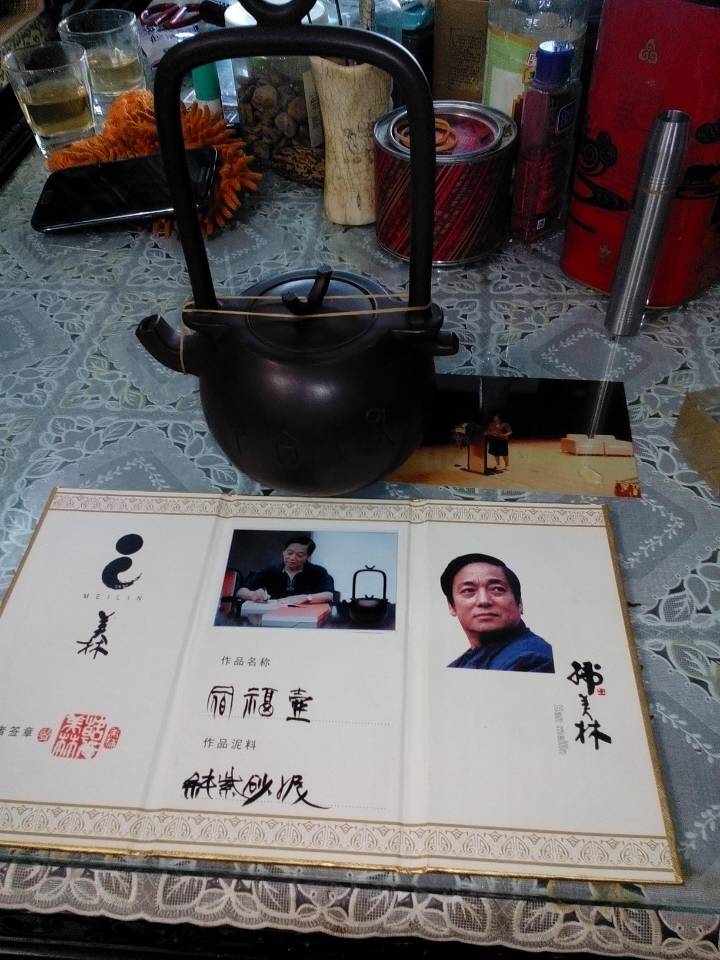 MEILIN
美林
者签章
作品名称
福壶
作品泥料
纯紫砂泥
韩美林
han meilin